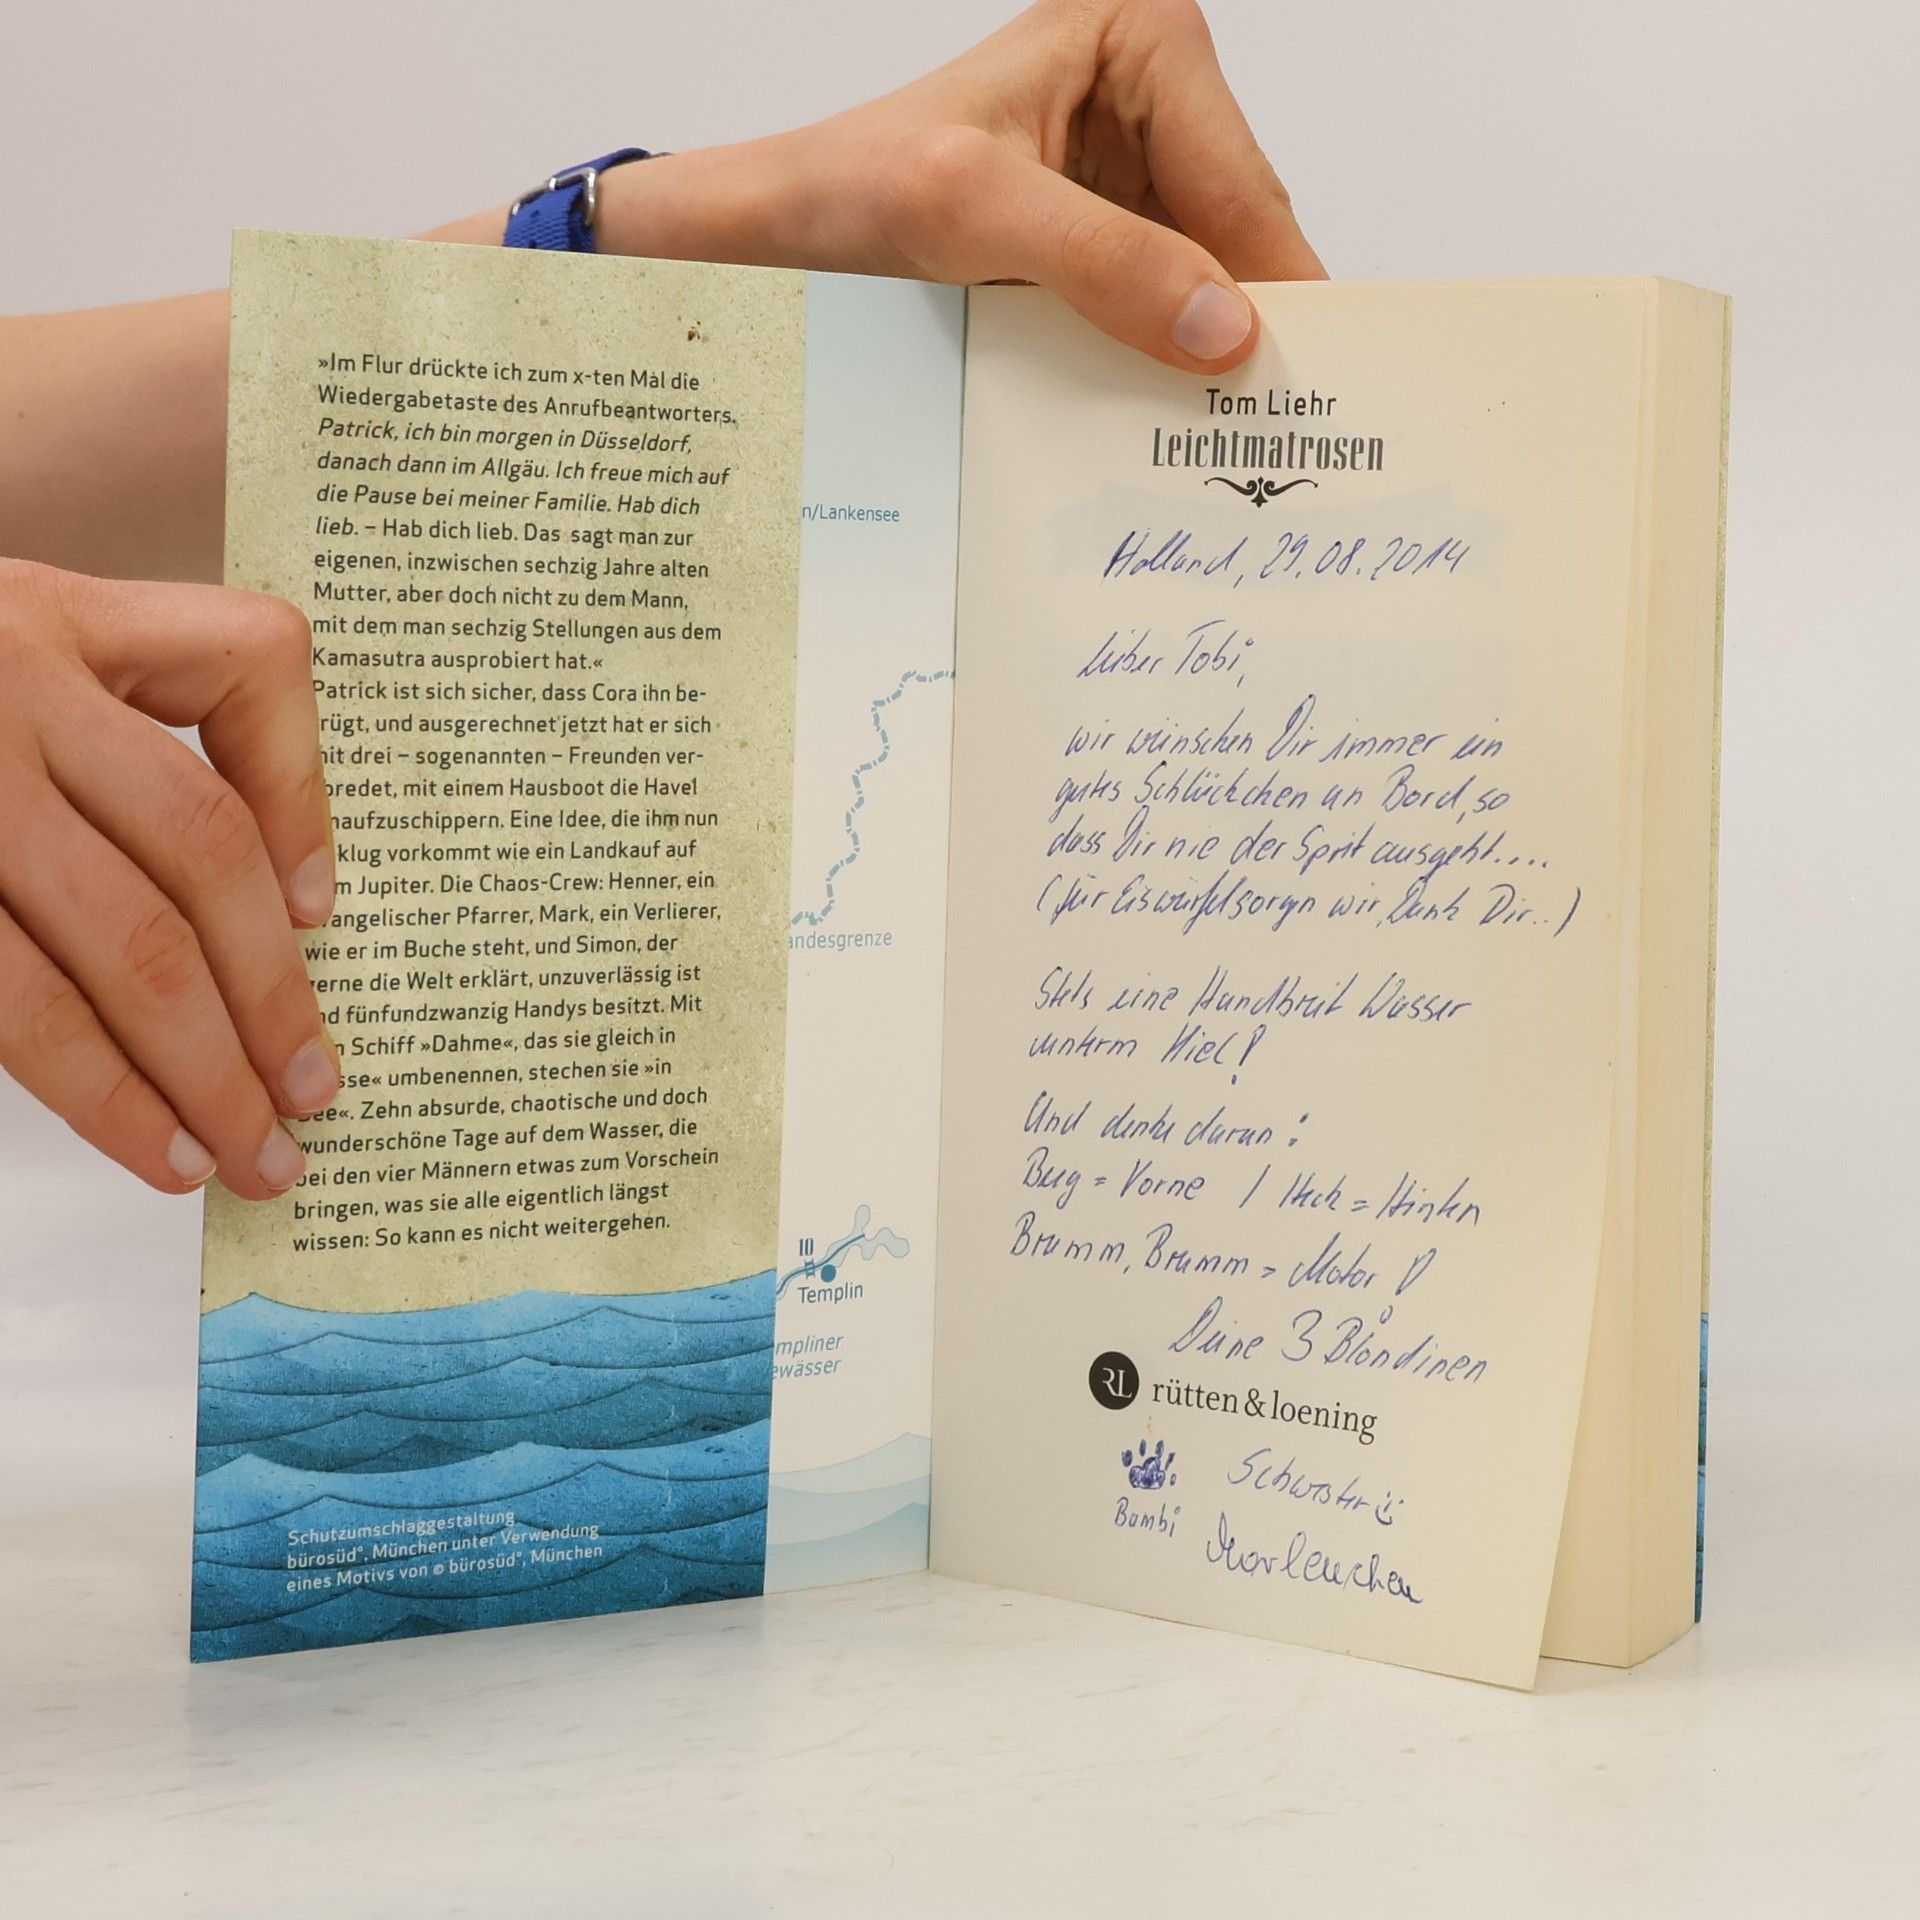 »Im Flur drückte ich zum x-ten Mal die
Wiedergabetaste des Anrufbeantworters.
Patrick, ich bin morgen in Düsseldorf,
danach dann im Allgäu. Ich freue mich auf
die Pause bei meiner Familie. Hab dich
lieb. – Hab dich lieb. Das sagt man zur
eigenen, inzwischen sechzig Jahre alten
Mutter, aber doch nicht zu dem Mann,
mit dem man sechzig Stellungen aus dem
Kamasutra ausprobiert hat.«
Patrick ist sich sicher, dass Cora ihn be-
rügt, und ausgerechnet jetzt hat er sich
it drei – sogenannten – Freunden ver-
bredet, mit einem Hausboot die Havel
naufzuschippern. Eine Idee, die ihm nun
klug vorkommt wie ein Landkauf auf
m Jupiter. Die Chaos-Crew: Henner, ein
angelischer Pfarrer, Mark, ein Verlierer,
wie er im Buche steht, und Simon, der
erne die Welt erklärt, unzuverlässig ist
nd fünfundzwanzig Handys besitzt. Mit
n Schiff »Dahme«, das sie gleich in
sse« umbenennen, stechen sie »in
ee«. Zehn absurde, chaotische und doch
wunderschöne Tage auf dem Wasser, die
bei den vier Männern etwas zum Vorschein
bringen, was sie alle eigentlich längst
wissen: So kann es nicht weitergehen.
Schutzumschlaggestaltung
bürosüd°, München unter Verwendung
eines Motivs von © bürosüd°, München
n/Lankensee
andesgrenze
10
Templin
mpliner
ewässer
Tom Liehr
Leichtmatrosen
Holland, 29.08.2014
Lieber Tobi,
wir wünschen Dir immer ein
gutes Schlückchen an Bord, so
dass Dir nie der Sprit ausgeht....
(für Eiswürfel sorgen wir, Dank Dir..)
Stets eine Handbreit Wasser
unterm Kiel!
Und denke daran:
Bug = Vorne / Heck = Hinten
Brumm, Brumm = Motor!
Deine 3 Blondinen
RL rütten & loening
Bambi
Schwester
Marlenchen